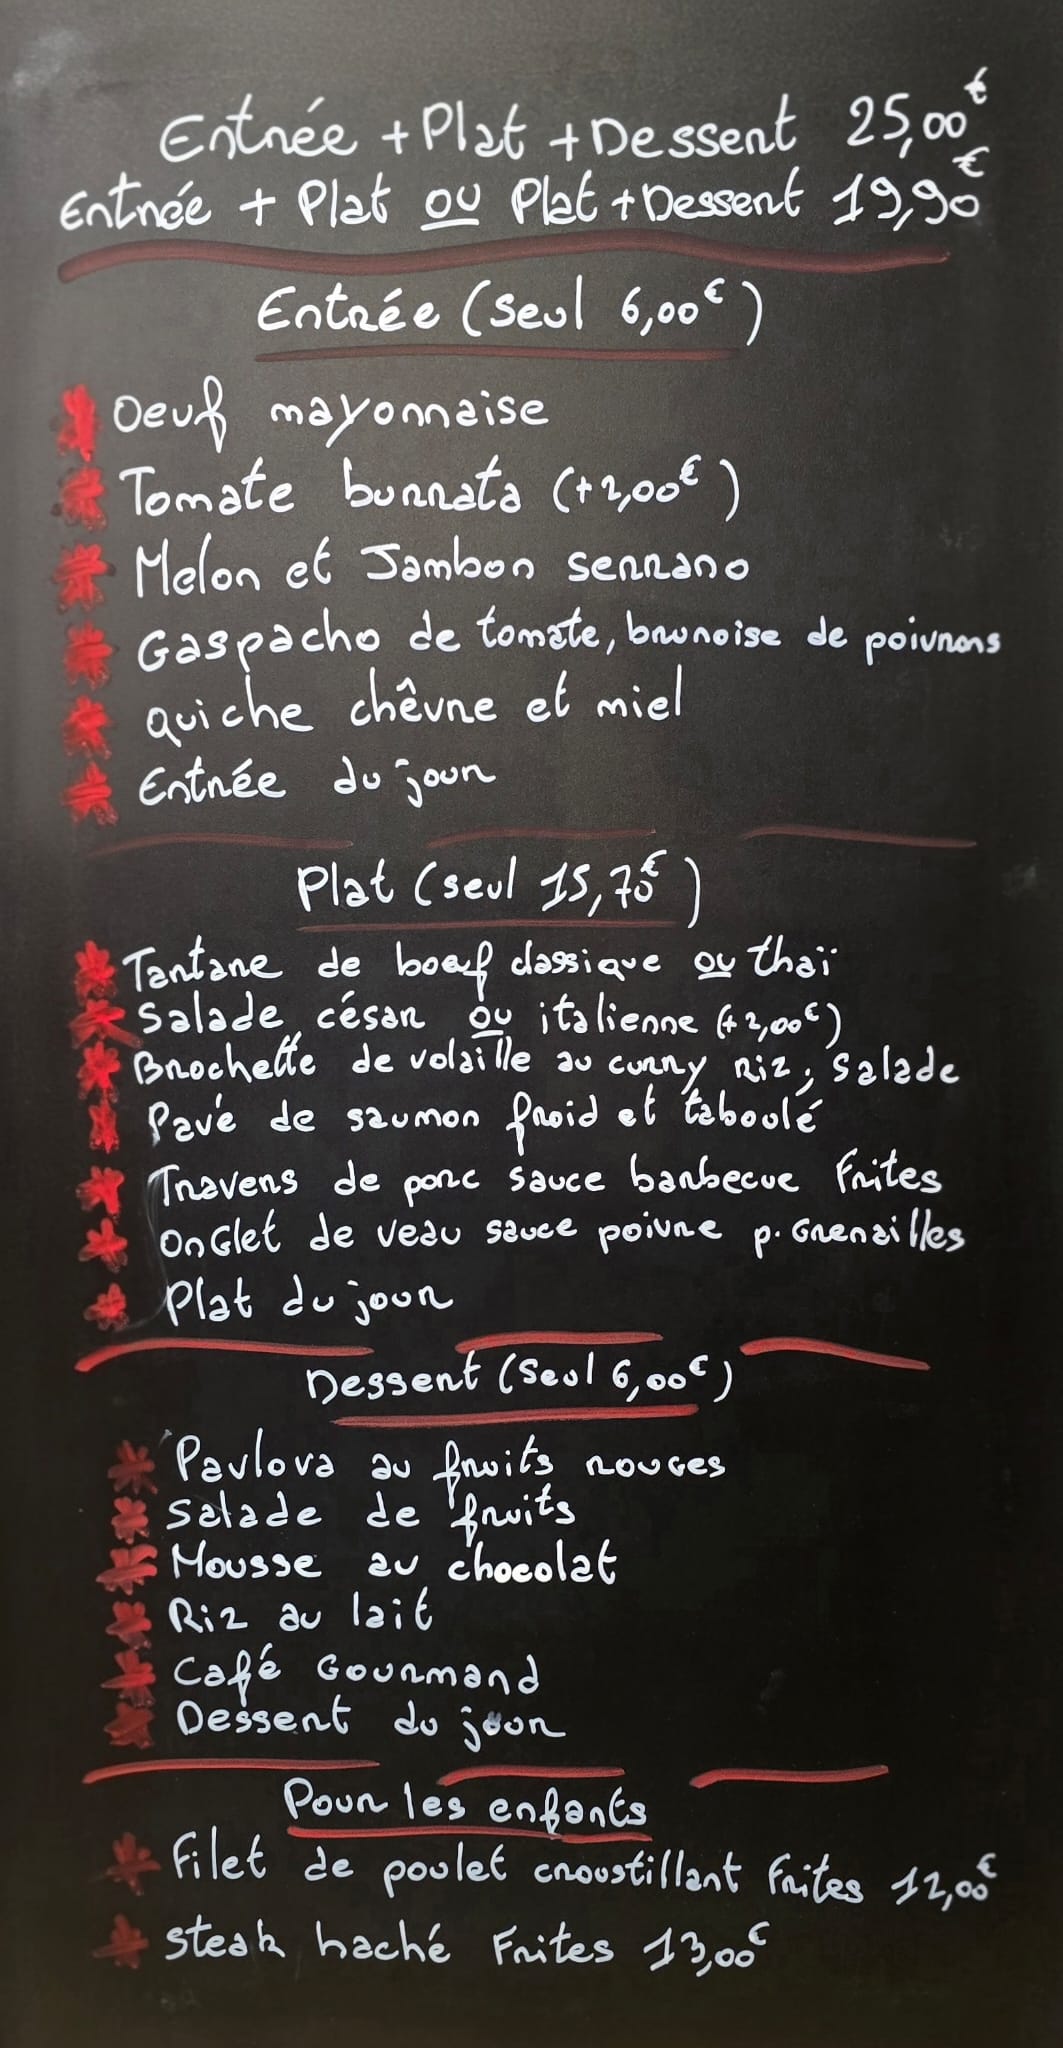 Entrée + Plat + Dessert 25,00€
Entrée + Plat ou Plat + Dessert 19,90€
Entrée (seul 6,00€)
Oeuf mayonnaise
Tomate burrata (+2,00€)
Melon et Jambon serrano
Gaspacho de tomate, brunoise de poivrons
quiche chêvre et miel
Entrée du jour
Plat (seul 15,70€)
Tartare de boeuf classique ou thaï
Salade césar ou italienne (+2,00€)
Brochette de volaille au curry Riz, Salade
Pavé de saumon froid et taboulé
Travers de porc sauce barbecue Frites
Onglet de veau sauce poivre p. Grenailles
Plat du jour
Dessert (Seul 6,00€)
Pavlova au fruits rouges
Salade de fruits
Mousse au chocolat
Riz au lait
Café Gourmand
Dessert du jour
Pour les enfants
Filet de poulet croustillant Frites 12,00€
steak haché Frites 13,00€